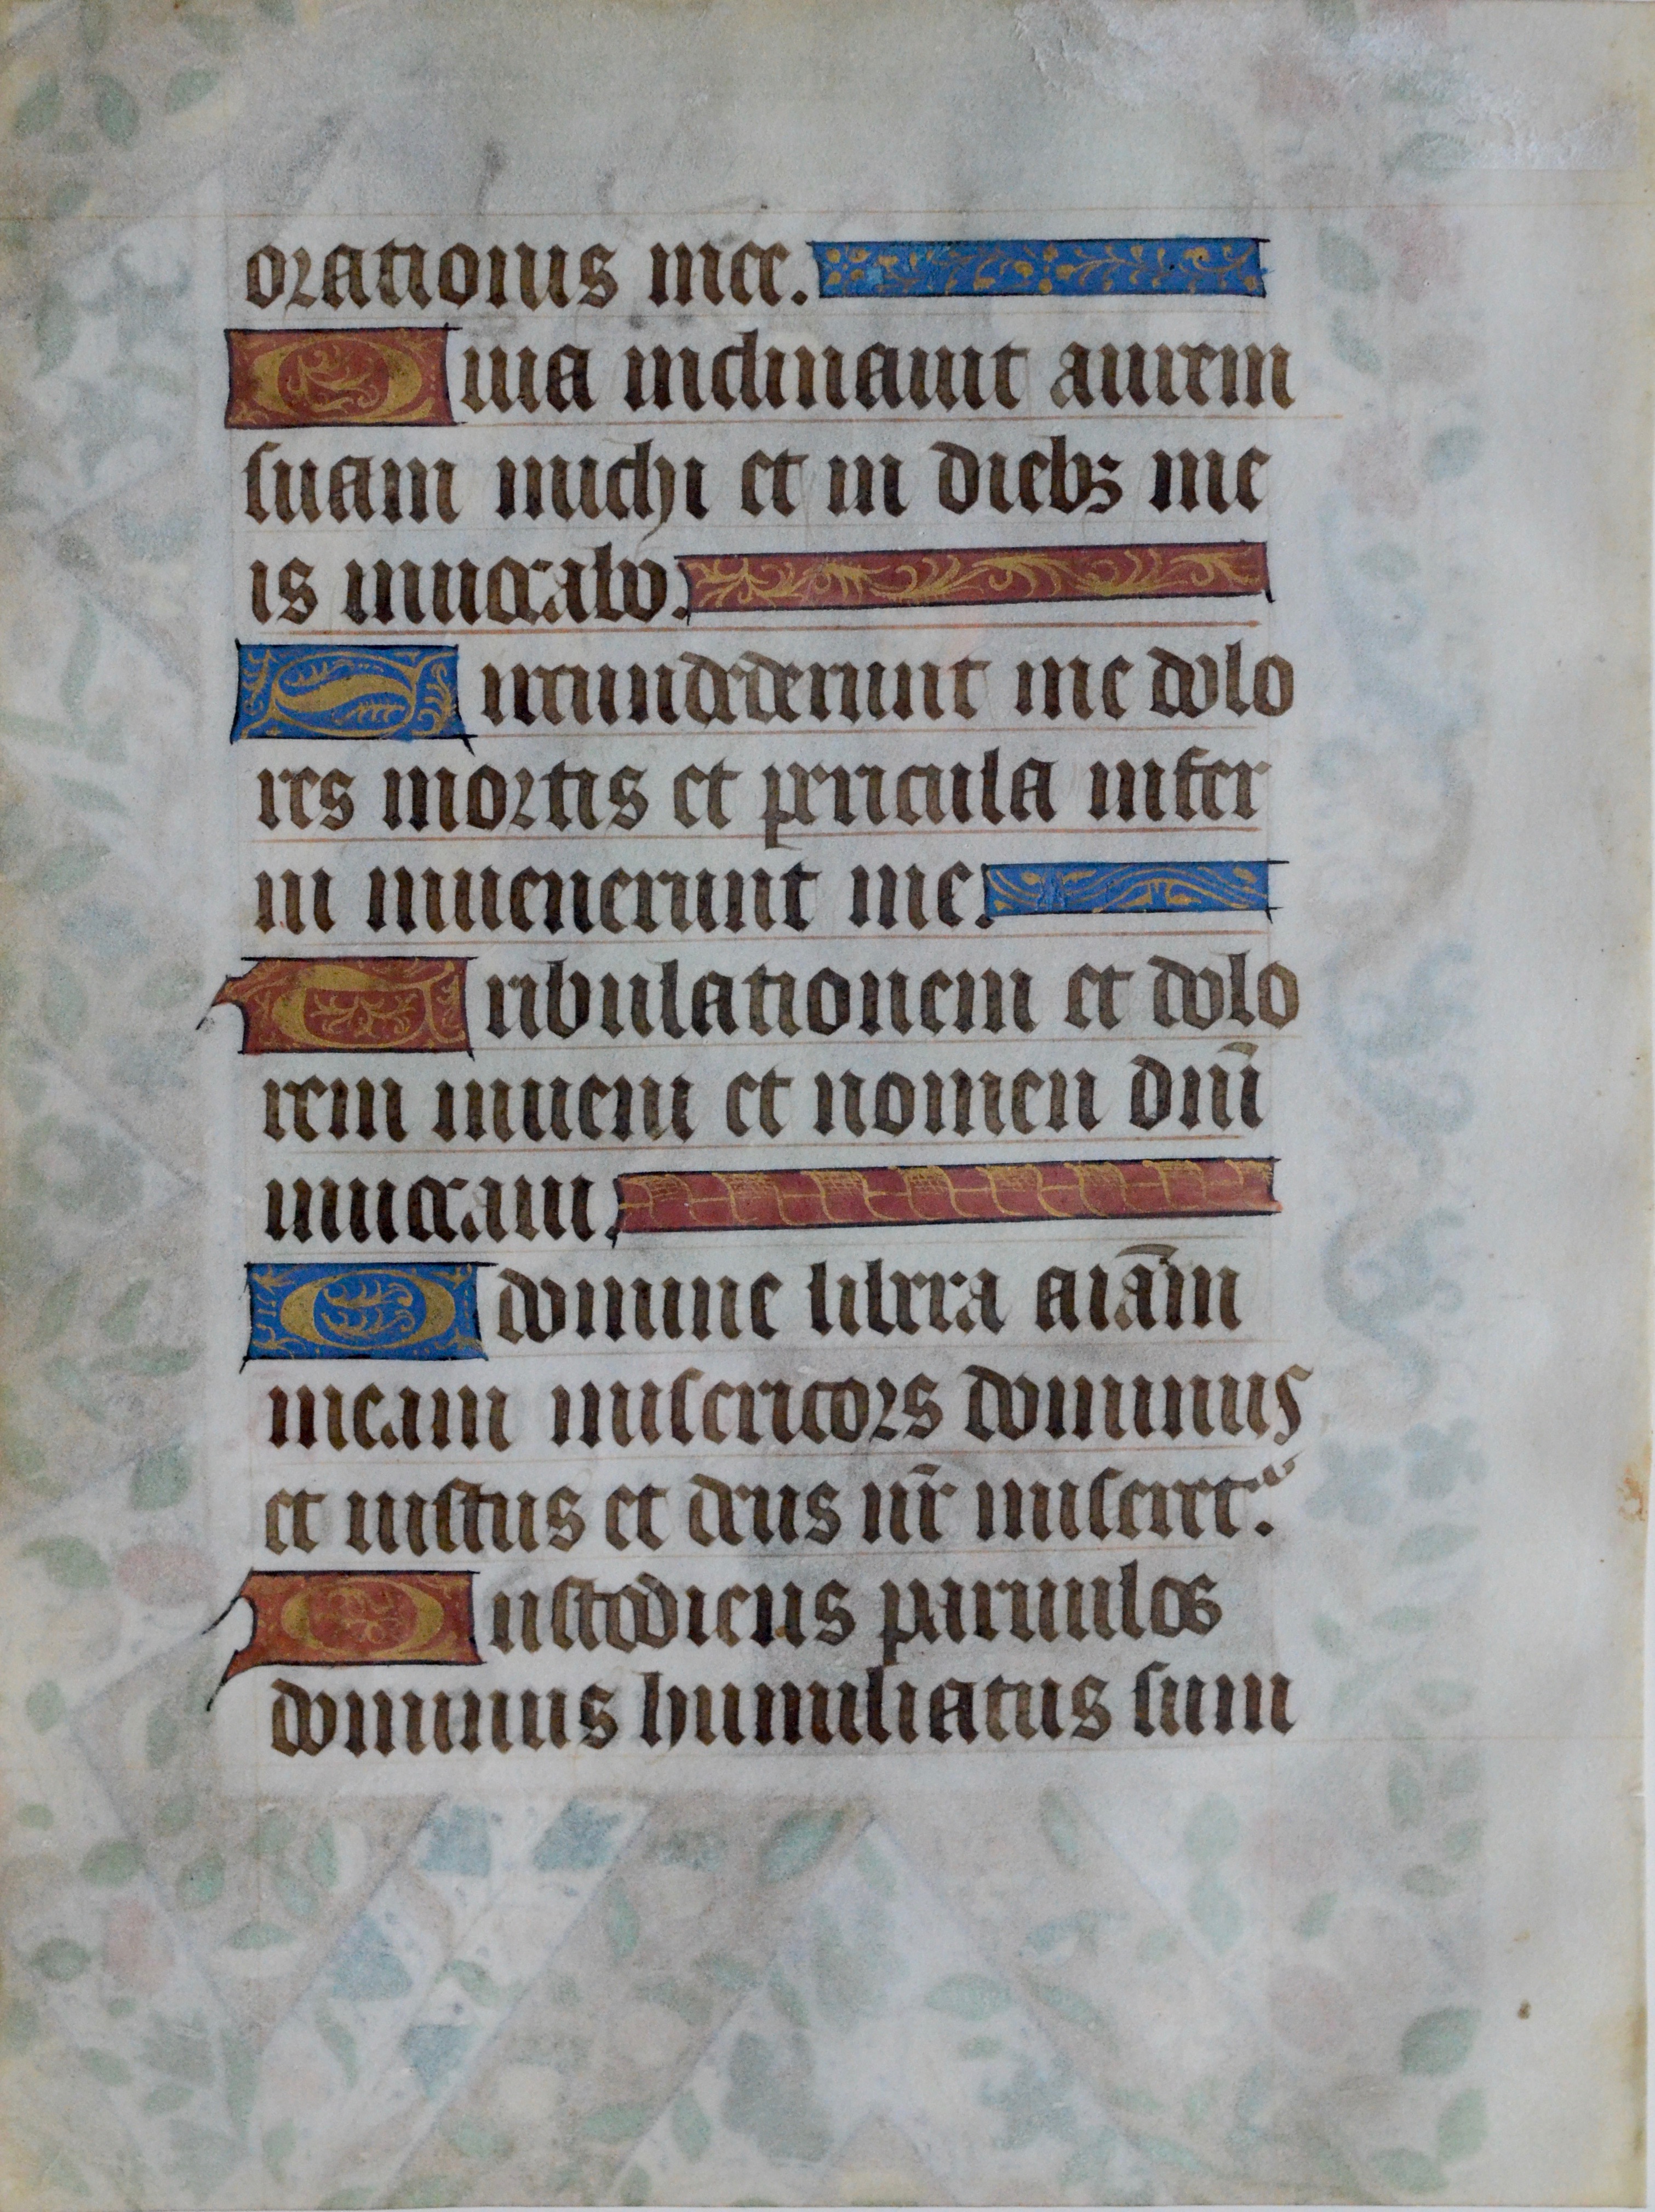 orationis mee.
Quia inclinauit aurem
suam michi et in diebꝫ me
is inuocabo.
Circundederunt me dolo
res mortis et pericula infer
ni inuenerunt me.
Tribulationem et dolo
rem inueni et nomen dn̄i
inuocaui.
O domine libera aīam
meam misericors dominus
et iustus et deus nr̄ miseret᷑.
Custodiens paruulos
dominus humiliatus sum